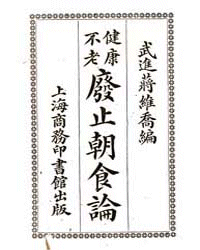 武進蔣維喬編
健康
不老
廢止朝食論
上海商務印書館出版